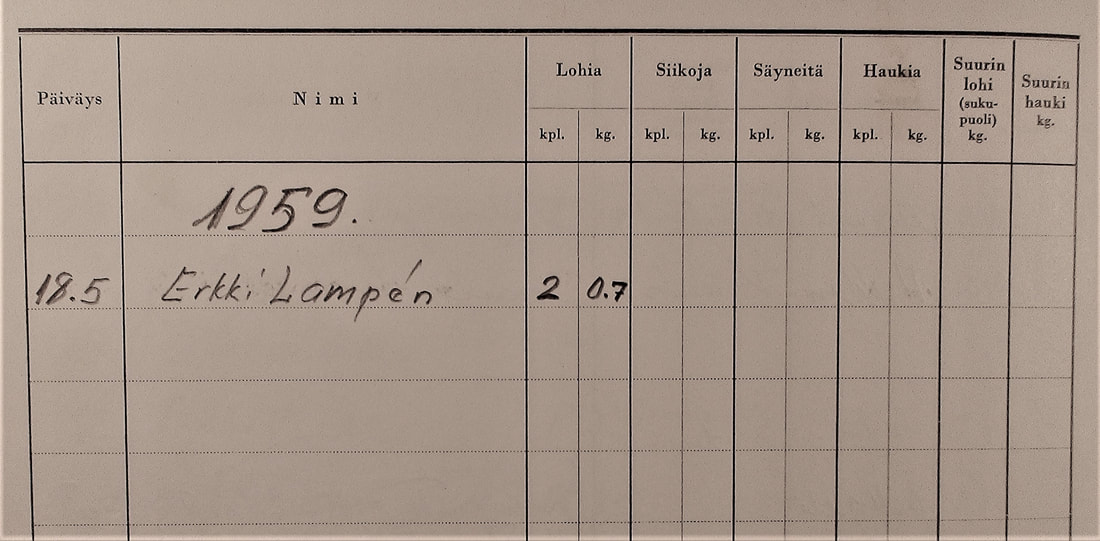 Päiväys Nimi Lohia Siikoja Säyneitä Haukia Suurin lohi (suku-puoli) kg. Suurin hauki kg.
kpl. kg. kpl. kg. kpl. kg. kpl. kg.
1959.
18.5 Erkki Lampén 2 0.7